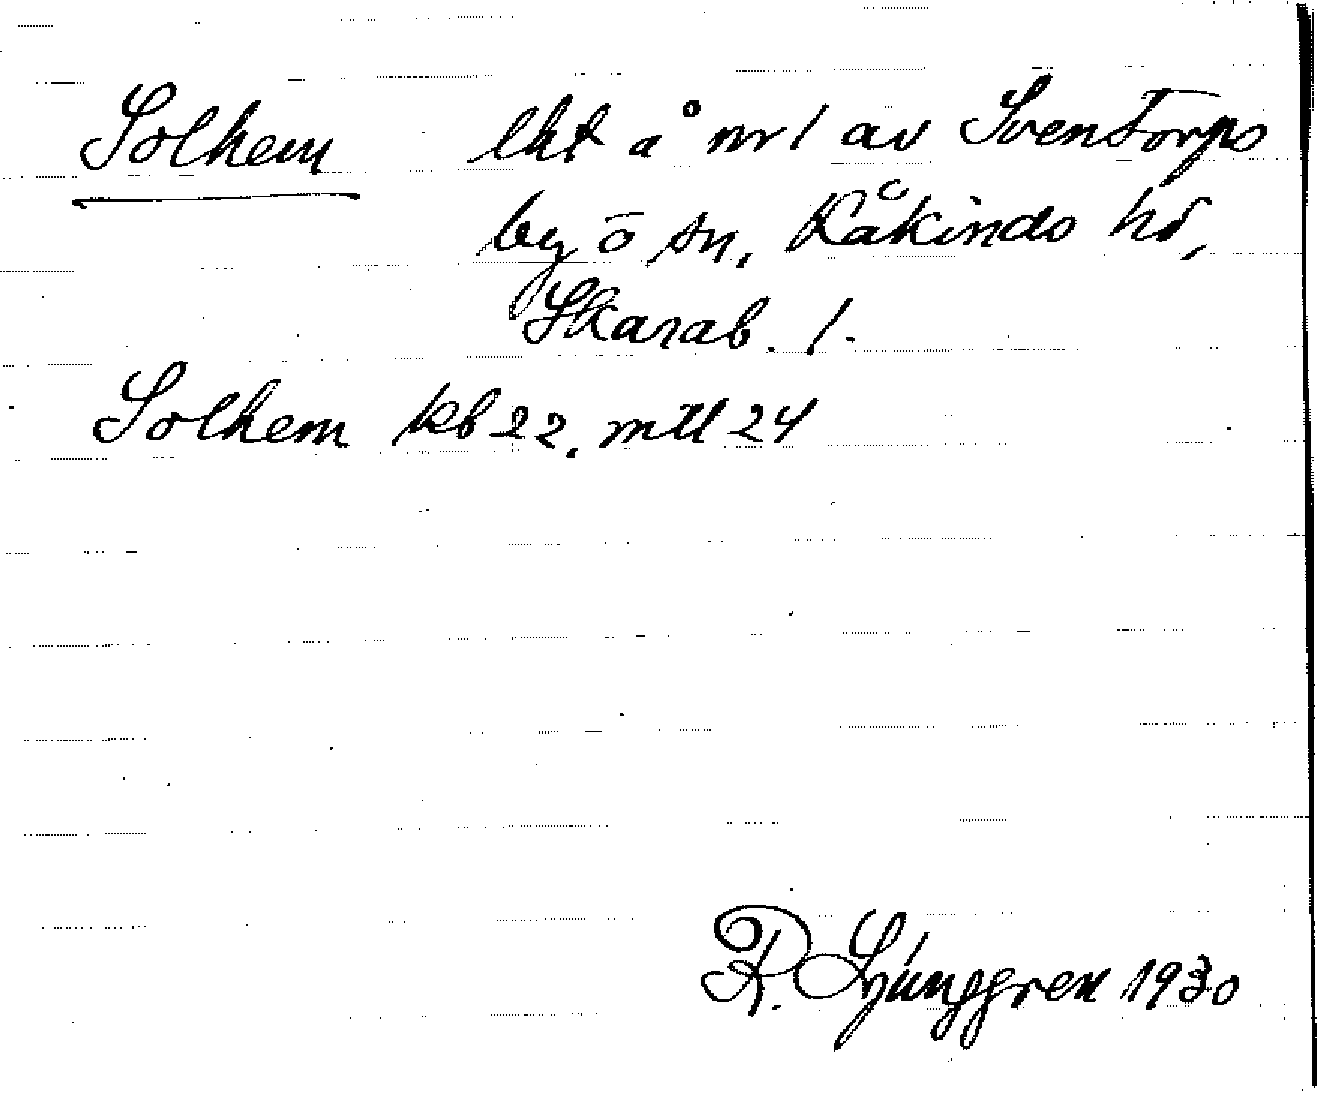 Solhem lht å nr 1 av Sventorps
by o sn, Kåkinds hd,
Skarab. l.
Solhem kb 22, mtl 24
R. Ljunggren 1930